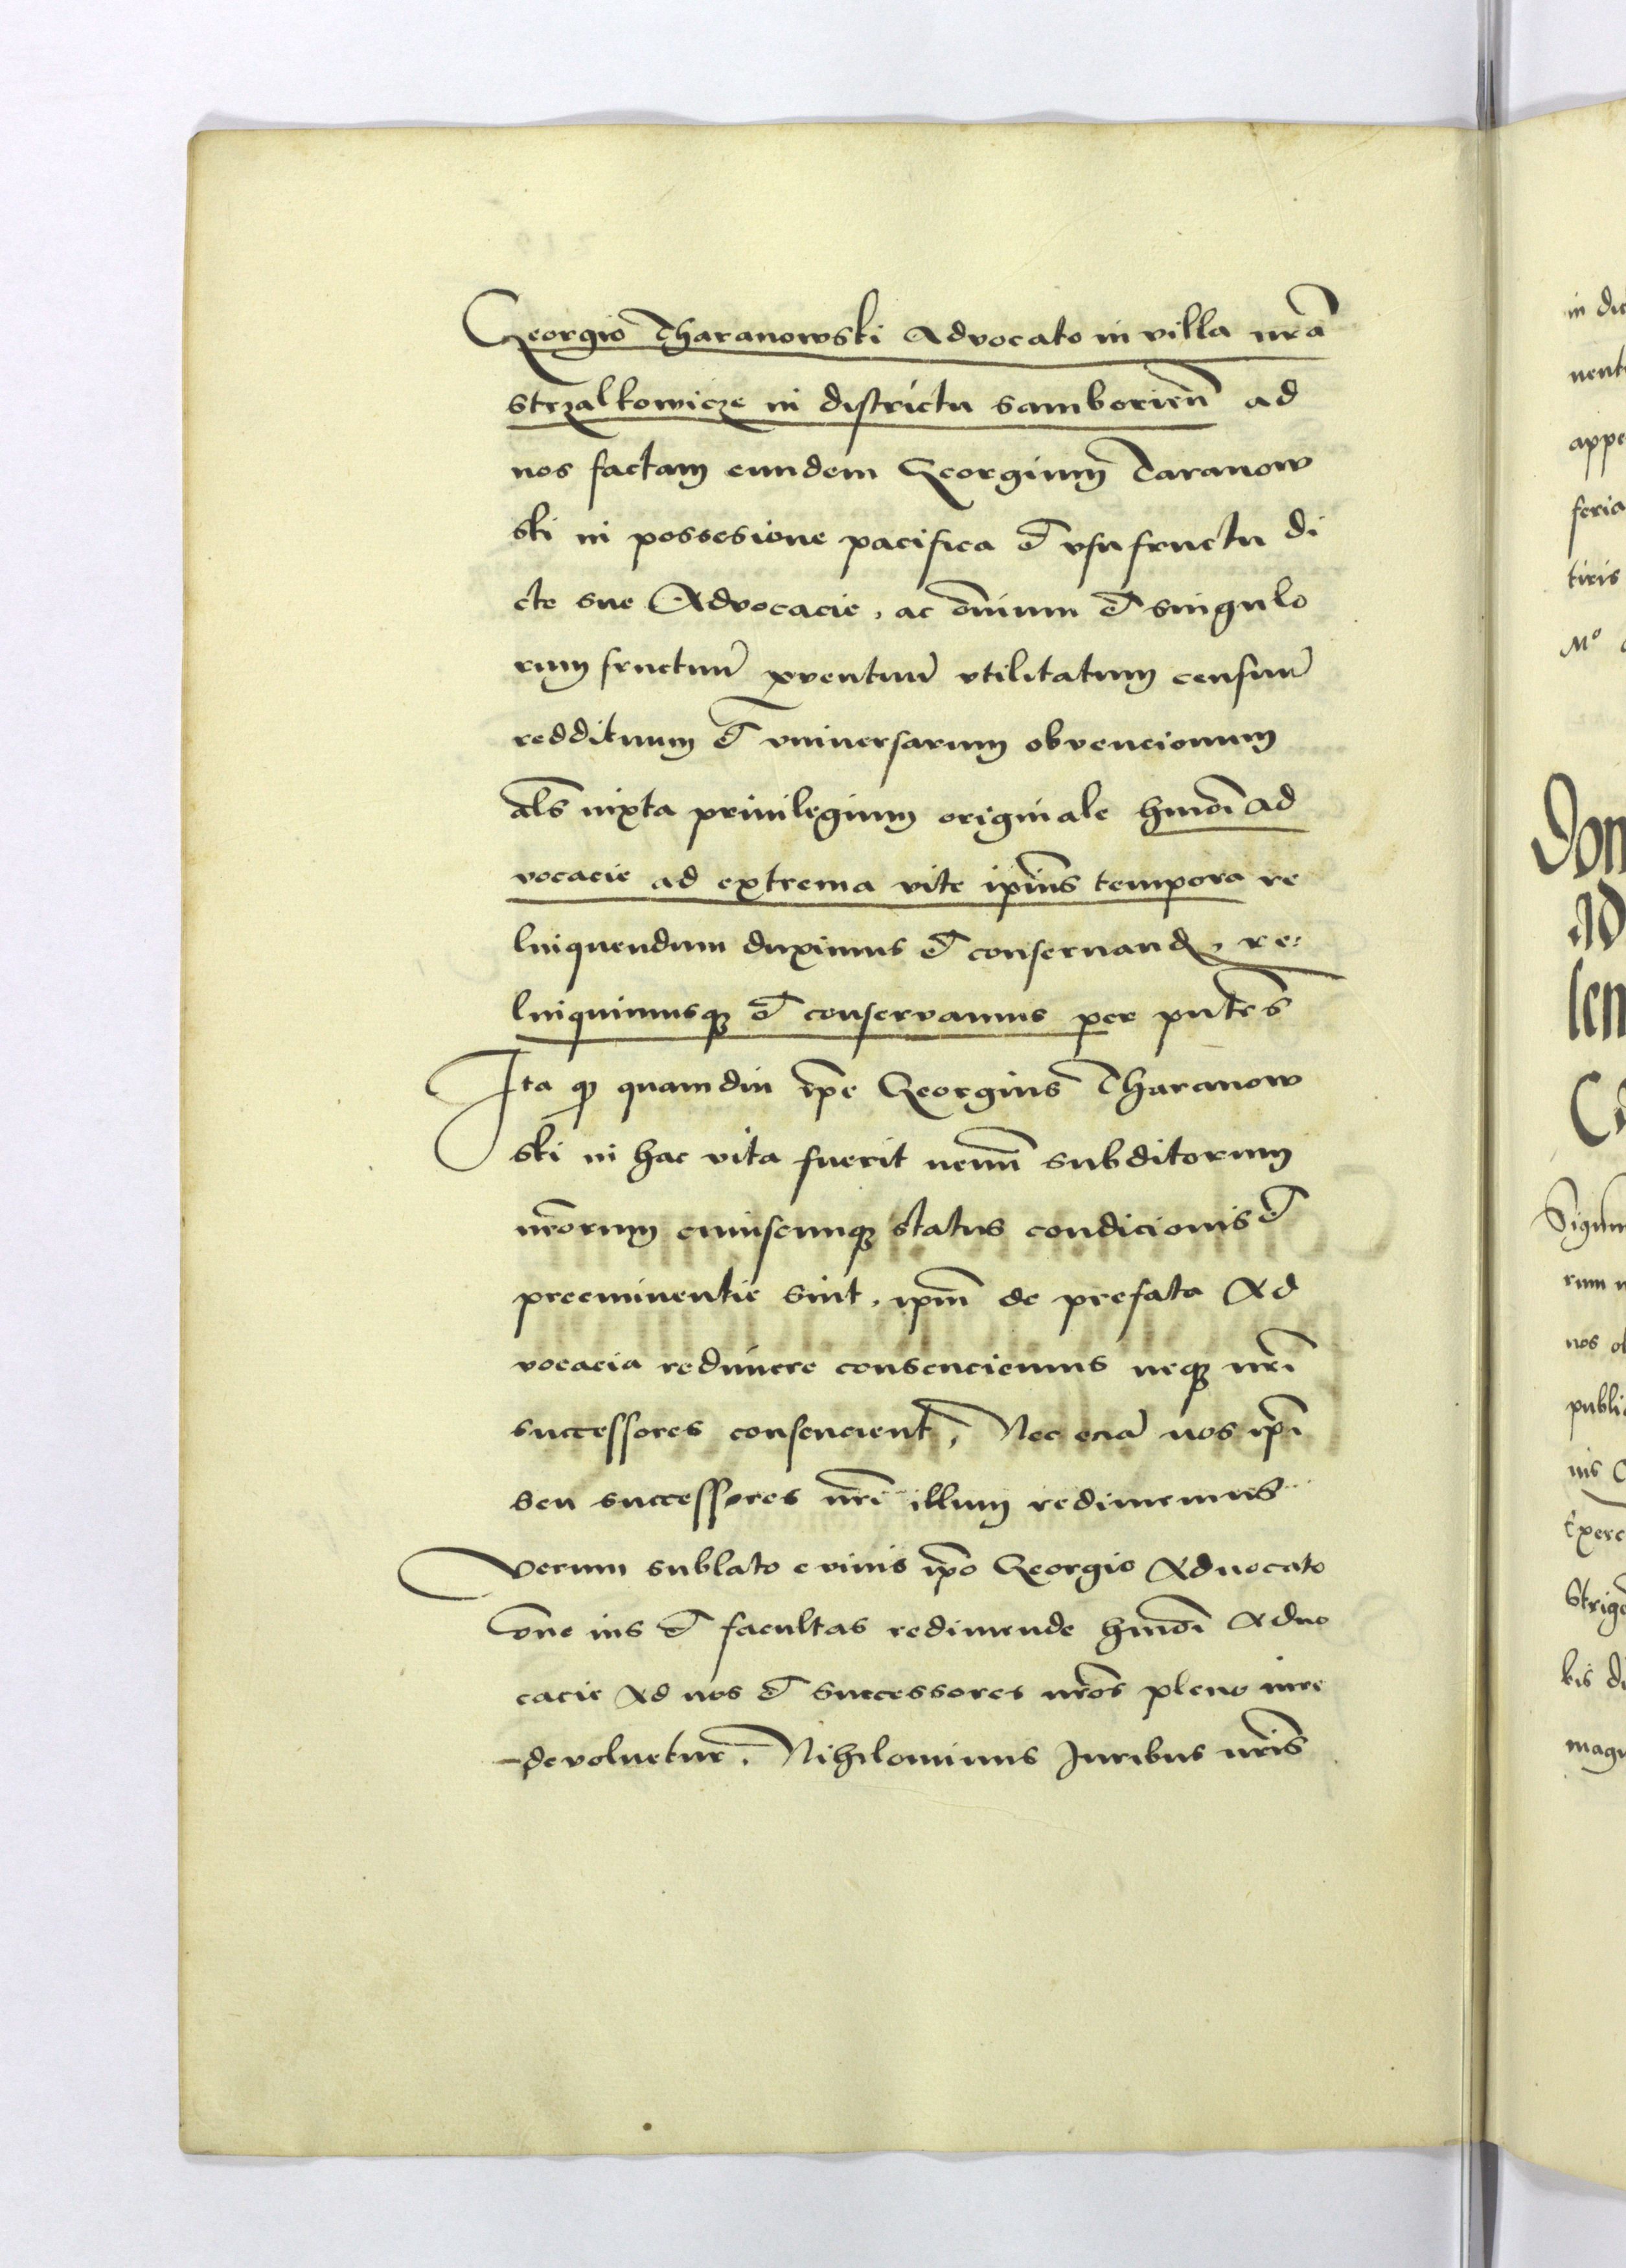 Georgio Tharanowski Advocato in villa nrã
strzalkowicze in districtu samborieñ ad
nos factam eundem Georgium Taranow
ski in possesione pacifica et vsufructu di
cte sue Advocacie, ac om̃ium et singulo
rum fructuũ ꝓventuũ vtilitatum censuũ
reddituum et vniuersarum obvencionum
al̃s iuxta priuilegium originale hmõi ad
vocacie ad extrema vite ip̃ius tempora re
linquendum duximus et conseruand, re:
linquimusqꝫ et conservamus per pñtes
Ita qꝫ quamdiu ip̃e Georgius Tharanow
ski in hac vita fuerit nemĩ subditorum
nr̃orum cuiuscunqꝫ status condicionis et
preeminentie sint, ip̃m de prefata Ad
vocacia redimere consenciemus neqꝫ nr̃i
successores consencient, Nec eciã nos ip̃i
seu successores nr̃i illum redimemus
Verum sublato e viuis ip̃o Georgio Aduocato
om̃e ius et facultas redimende hmõi Aduo
cacie Ad nos et successores nr̃os pleno iure
devoluetur. Nihilominus Juribus nr̃is
in dic
nent
appe
feria
tiris
Mº
Don
ad
len
Signum
rum n
nos ob
publi
nis
Exerc
Strigo
bis di
magn